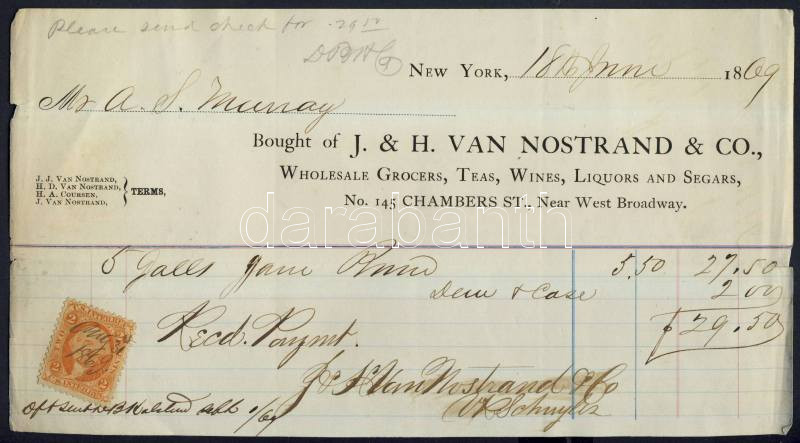 Please send check for .29 50
NEW YORK, 18th June 1869
Mr A. S. Murray
Bought of J. & H. VAN NOSTRAND & CO.,
WHOLESALE GROCERS, TEAS, WINES, LIQUORS AND SEGARS,
No. 145 CHAMBERS ST., Near West Broadway.
J. J. VAN NOSTRAND,
H. D. VAN NOSTRAND,
H. A. COURSEN,
J. VAN NOSTRAND,
TERMS,
darabanth
5 Galls Jam Rum 5.50 27.50
Dem & Case 2 00
$29.50
Recd. Paymt.
J & H Van Nostrand & Co
Schuyler
2 2